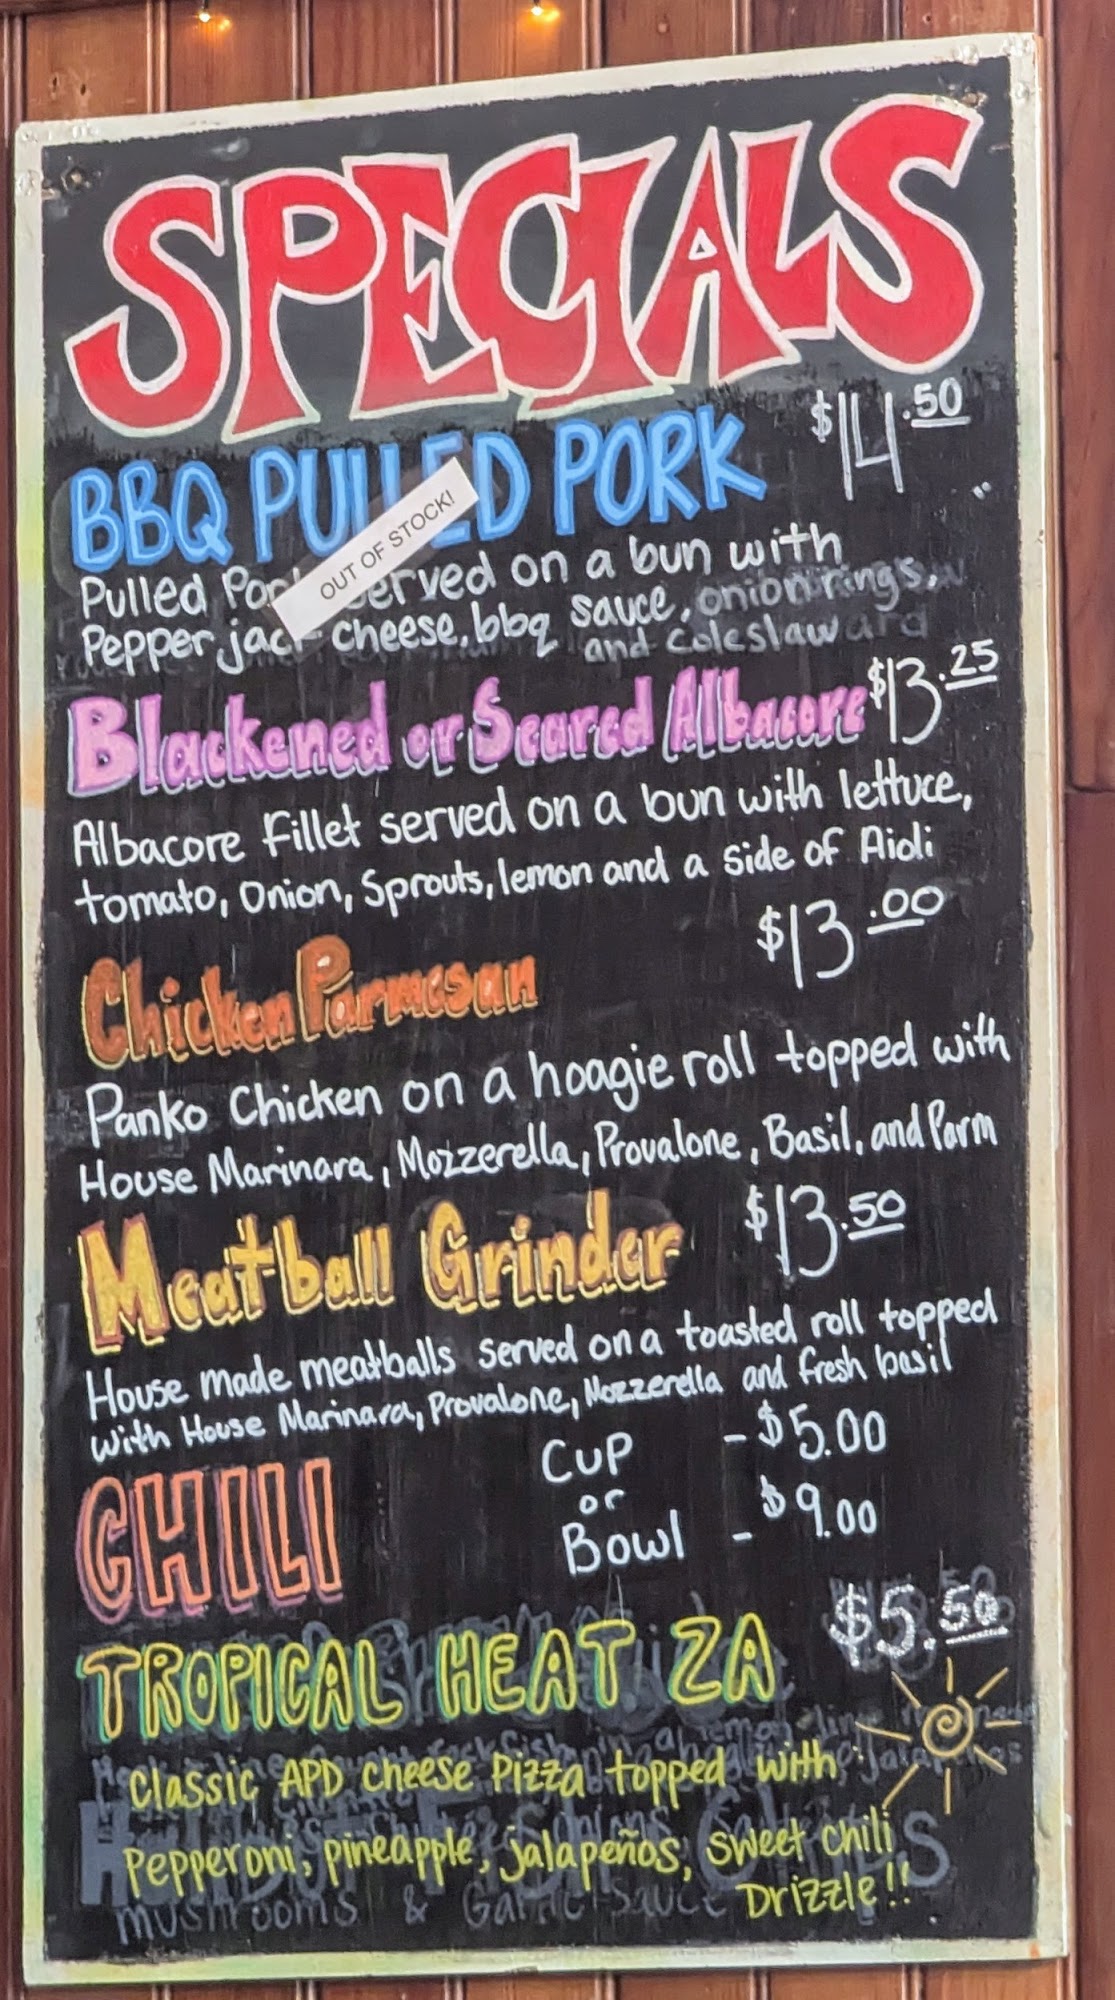 SPECIALS
BBQ PULLED PORK $14.50
OUT OF STOCK!
Pulled Pork served on a bun with
Pepper jack cheese, bbq sauce, onion rings,
and coleslaw
Blackened or Seared Albacore $13.25
Albacore Fillet served on a bun with lettuce,
tomato, Onion, Sprouts, lemon and a side of Aioli
Chicken Parmesan $13.00
Panko Chicken on a hoagie roll topped with
House Marinara, Mozzerella, Provalone, Basil, and Parm
Meatball Grinder $13.50
House made meatballs served on a toasted roll topped
with House Marinara, Provalone, Mozzerella and fresh basil
CHILI
Cup - $5.00
or
Bowl - $9.00
TROPICAL HEAT ZA $5.50
Classic APD cheese Pizza topped with
Pepperoni, pineapple, jalapeños, sweet chili
Drizzle!!
mushrooms & Garlic Sauce